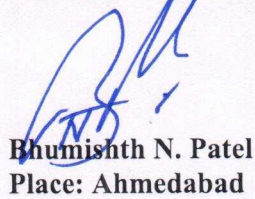 Bhumishth N. Patel
Place: Ahmedabad